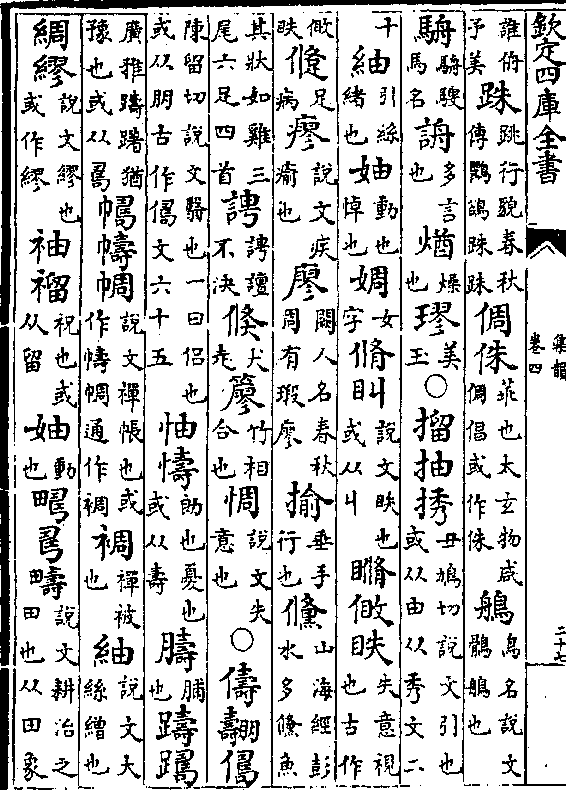 欽定四庫全書
集韻
卷四
二十七
誰侜予美 跦 跳行貌春秋傳鸜鵒跦跦 倜侏 菲也太玄物咸倜倡或作侏 鵃 鳥名說文鶻鵃也
騆 騆騣馬名 詶 多言也 燥也 璆 美玉 ○ 㨨抽㨱 丑鳩切說文引也或从由从秀文二
十 紬 引絲緒也 妯 動也悼也 婤 女字 說文眣也或从丩 失意視也古作
足眣 病 瘳 說文疾瘉也 廖 闕人名春秋周有瑕廖 揄 垂手行也 儵 山海經彭水多儵魚
其狀如雞三尾六足四首 不決 犬走 竹相合也 惆 說文失意也 ○ 儔翿
陳留切說文翳也一曰侶也或从朋古作文六十五 怞懤 朗也憂也或从壽 脯也 躊
廣雅躊躇猶豫也或从 幬 說文襌帳也或作幬通作裯 裯 襌被也 紬 說文大絲繒也
綢繆 說文繆也或作繆 祝也或从留 妯 動也 疇 說文耕治之田也从田象